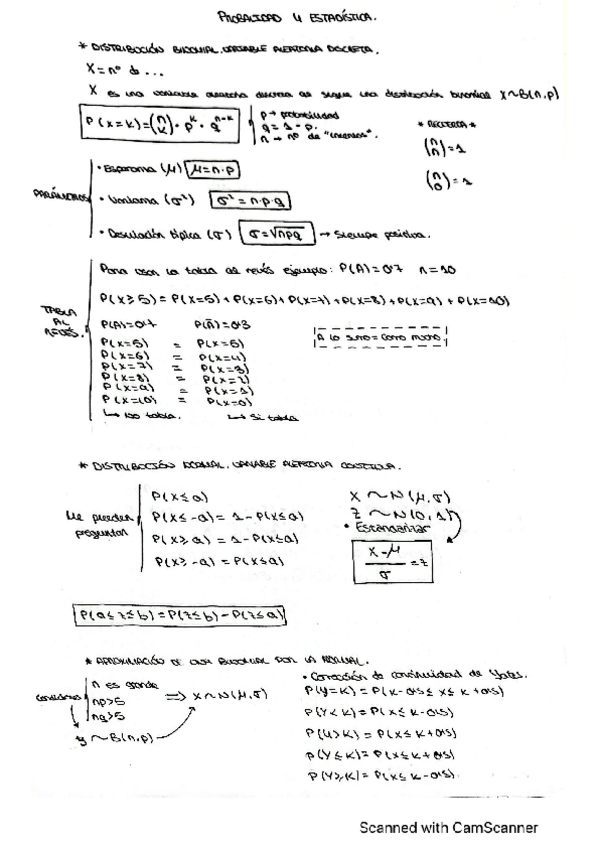 PROBALIDAD Y ESTADÍSTICA.
* DISTRIBUCIÓN BINOMIAL. VARIABLE ALEATORIA DISCRETA.
X = nº de ...
X es una variable aleatoria discreta que sigue una distribución binomial X~B(n,p)
P(X=k) = (n k) · p^k · q^(n-k)
p → probabilidad
q = 1 - p.
n → nº de "intentos".
* RECUERDA *
(n n) = 1
(n 0) = 1
PARÁMETROS
• Esperanza (μ) μ = n·p
• Varianza (σ²) σ² = n·p·q
• Desviación típica (σ) σ = √npq → Siempre positiva.
TABLA AL REVÉS.
Para usar la tabla al revés ejemplo: P(A) = 0'7 n = 10
P(X≥5) = P(X=5) + P(X=6) + P(X=7) + P(X=8) + P(X=9) + P(X=10)
P(A) = 0'7 P(Ā) = 0'3
A lo sumo = como mucho.
P(X=5) = P(X=5)
P(X=6) = P(X=4)
P(X=7) = P(X=3)
P(X=8) = P(X=2)
P(X=9) = P(X=1)
P(X=10) = P(X=0)
↳ no tabla. ↳ Si tabla
* DISTRIBUCIÓN NORMAL. VARIABLE ALEATORIA CONTINUA.
Me pueden preguntar
P(X≤a)
P(X≤-a) = 1 - P(X≤a)
P(X≥a) = 1 - P(X≤a)
P(X≥-a) = P(X≤a)
X ~ N(μ,σ)
Z ~ N(0,1)
• Estandarizar
(X-μ)/σ = z
P(a≤z≤b) = P(z≤b) - P(z≤a)
* APROXIMACIÓN DE UNA BINOMIAL POR LA NORMAL.
Condiciones
n es grande
np>5
nq>5
⇒ X~N(μ,σ)
y ~ B(n,p)
• Corrección de continuidad de Yates.
P(Y=K) = P(K-0'5 ≤ X ≤ K+0'5)
P(Y<K) = P(X ≤ K-0'5)
P(Y>K) = P(X ≤ K+0'5)
P(Y≤K) = P(X ≤ K+0'5)
P(Y≥K) = P(X ≤ K-0'5).
Scanned with CamScanner